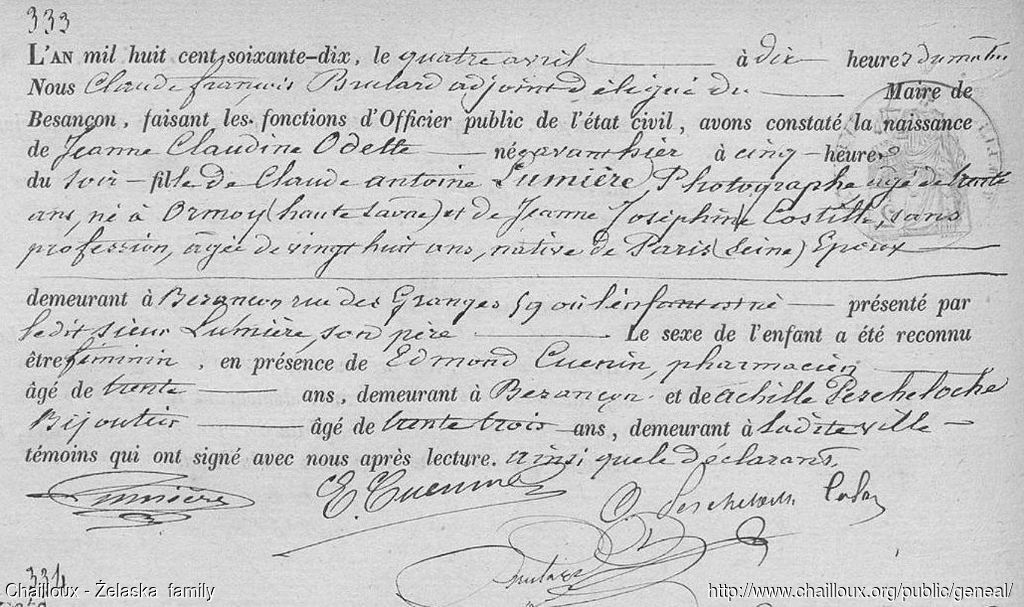 333
L'AN mil huit cent soixante-dix, le quatre avril à dix heures du matin
Nous Claude françois Bulard adjoint délégué du Maire de
Besançon, faisant les fonctions d'Officier public de l'état civil, avons constaté la naissance
de Jeanne Claudine Odette née avant hier à cinq heures
du soir fille de Claude antoine Lumière, Photographe agé de trente
ans, né à Ormoy (haute saône) et de Jeanne Joséphine Costille, sans
profession, âgée de vingt huit ans, native de Paris (Seine) Epoux
demeurant à Besançon rue des Granges 59 où l'enfant est né présenté par
ledit sieur Lumière, son père Le sexe de l'enfant a été reconnu
être féminin, en présence de Edmond Cuenin, pharmacien
âgé de trente ans, demeurant à Besançon et de achille Percheloche
Bijoutier âgé de trente trois ans, demeurant à ladite ville
témoins qui ont signé avec nous après lecture. ainsi que le déclarant.
Lumière E. Cuenin
334
Chailloux - Żelaska family http://www.chailloux.org/public/geneal/